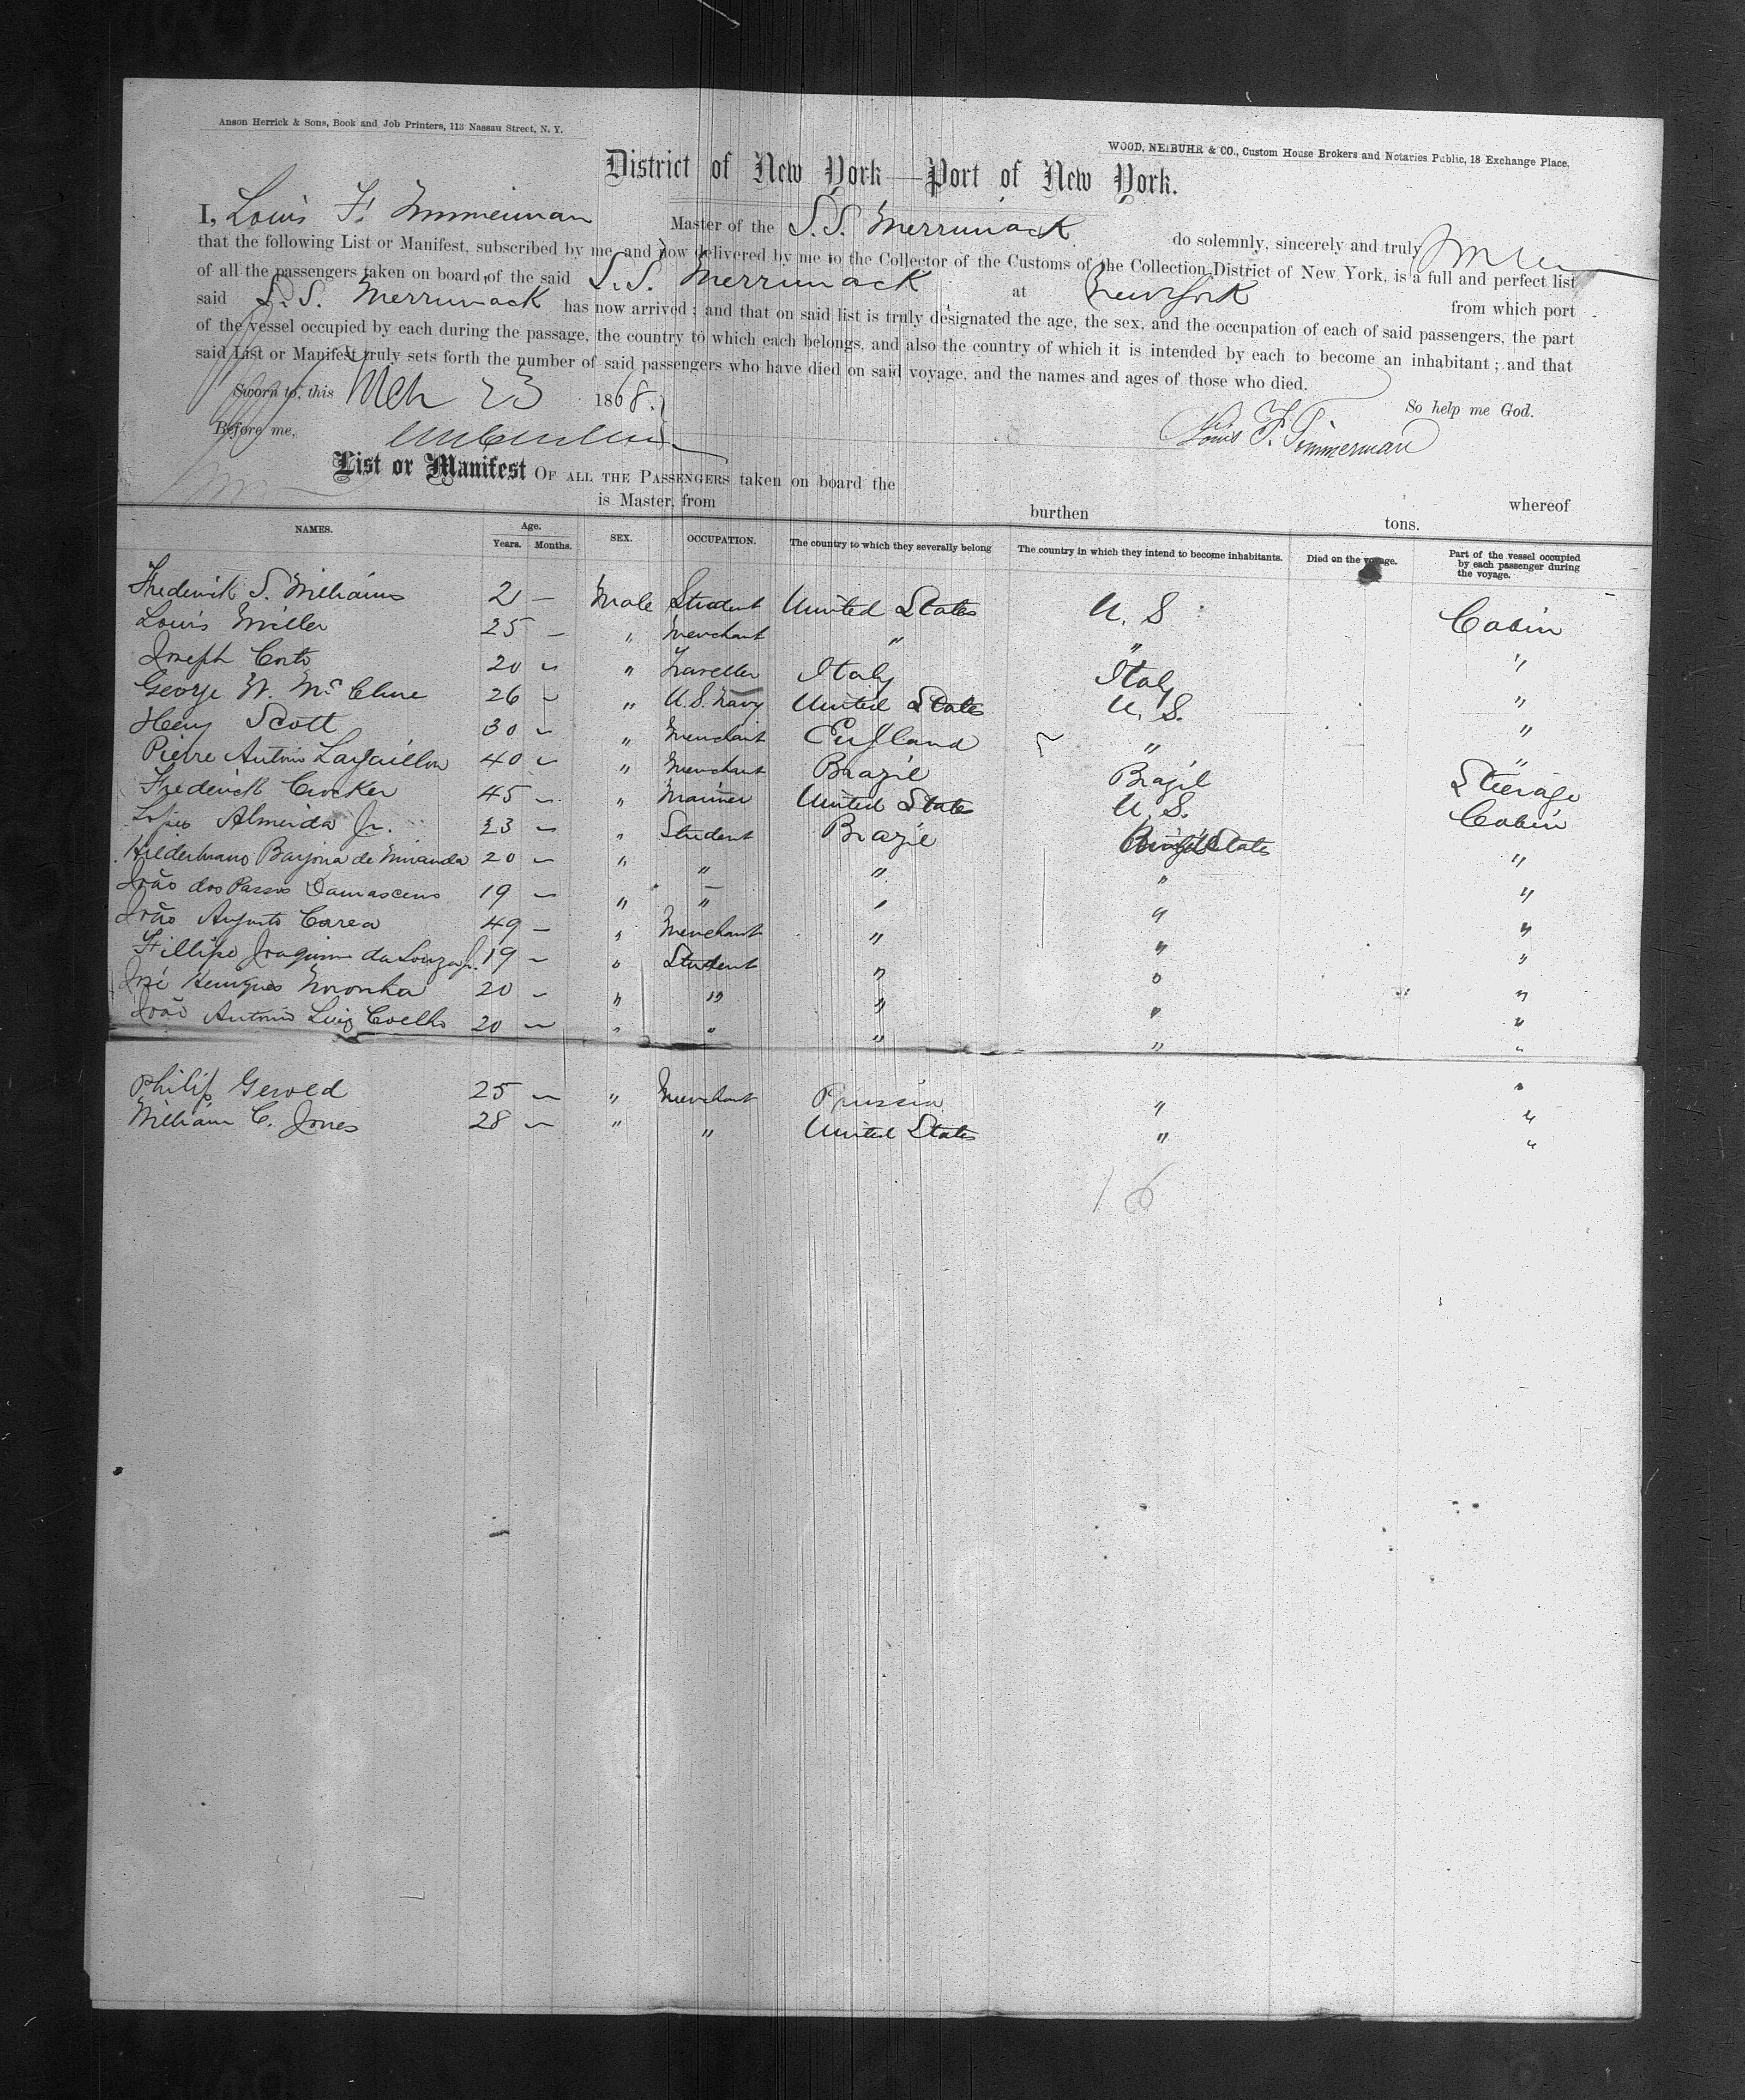 Anson Herrick & Sons, Book and Job Printers, 113 Nassau Street, N. Y.
WOOD, NEIBUHR & CO., Custom House Brokers and Notaries Public, 18 Exchange Place.
District of New York—Port of New York.
I, Louis F. Timmerman Master of the S.S. Merrimack do solemnly, sincerely and truly
that the following List or Manifest, subscribed by me, and now delivered by me to the Collector of the Customs of the Collection District of New York, is a full and perfect list
of all the passengers taken on board of the said S.S. Merrimack at New York from which port
said S.S. Merrimack has now arrived; and that on said list is truly designated the age, the sex, and the occupation of each of said passengers, the part
of the vessel occupied by each during the passage, the country to which each belongs, and also the country of which it is intended by each to become an inhabitant; and that
said List or Manifest truly sets forth the number of said passengers who have died on said voyage, and the names and ages of those who died.
Sworn to, this Mch 23 1868. So help me God.
Before me, Louis F. Timmerman
List or Manifest OF ALL THE PASSENGERS taken on board the
is Master, from burthen tons. whereof
NAMES. Age. Years. Months. SEX. OCCUPATION. The country to which they severally belong The country in which they intend to become inhabitants. Died on the voyage. Part of the vessel occupied by each passenger during the voyage.
Frederick S. Williams 21 — Male Student United States U. S Cabin
Louis Miller 25 — " Merchant " " "
Joseph Conti 20 — " Traveller Italy Italy "
George W. McClure 26 — " U.S. Navy United States U. S. "
Henry Scott 30 — " Merchant England " "
Pierre Antonio 40 — " Merchant Brazil Brazil Steerage
Frederick Crocker 45 — " Mariner United States U. S. Cabin
Lopes Almeida Jr. 23 — " Student Brazil States "
Hilderbrano de Miranda 20 — " " " " "
João dos Passos Damasceno 19 — " " " " "
João Augusto Correa 49 — " Merchant " " "
Fillipe Joaquim da Souza Jr. 19 — " Student " " "
José Henriques Noronha 20 — " " " " "
João Antonio Luiz Coelho 20 — " " " " "
Philip Gerold 25 — " Merchant Prussia " "
William C. Jones 28 — " " United States " "
16